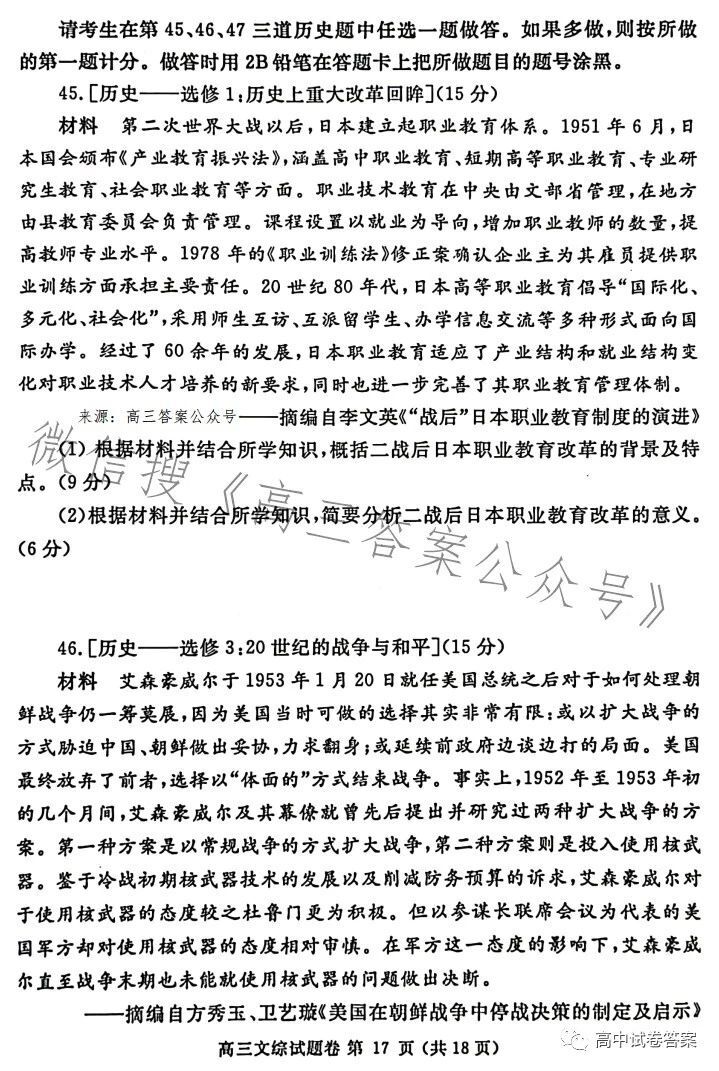 请考生在第 45、46、47 三道历史题中任选一题做答。如果多做,则按所做
的第一题计分。做答时用 2B 铅笔在答题卡上把所做题目的题号涂黑。
45.[历史——选修 1:历史上重大改革回眸](15 分)
材料 第二次世界大战以后,日本建立起职业教育体系。1951 年 6 月,日
本国会颁布《产业教育振兴法》,涵盖高中职业教育、短期高等职业教育、专业研
究生教育、社会职业教育等方面。职业技术教育在中央由文部省管理,在地方
由县教育委员会负责管理。课程设置以就业为导向,增加职业教师的数量,提
高教师专业水平。1978 年的《职业训练法》修正案确认企业主为其雇员提供职
业训练方面承担主要责任。20 世纪 80 年代,日本高等职业教育倡导“国际化、
多元化、社会化”,采用师生互访、互派留学生、办学信息交流等多种形式面向国
际办学。经过了 60 余年的发展,日本职业教育适应了产业结构和就业结构变
化对职业技术人才培养的新要求,同时也进一步完善了其职业教育管理体制。
来源：高三答案公众号——摘编自李文英《“战后”日本职业教育制度的演进》
(1) 根据材料并结合所学知识,概括二战后日本职业教育改革的背景及特
点。(9 分)
(2)根据材料并结合所学知识,简要分析二战后日本职业教育改革的意义。
(6 分)
微信搜《高三答案公众号》
46.[历史——选修 3:20 世纪的战争与和平](15 分)
材料 艾森豪威尔于 1953 年 1 月 20 日就任美国总统之后对于如何处理朝
鲜战争仍一筹莫展,因为美国当时可做的选择其实非常有限:或以扩大战争的
方式胁迫中国、朝鲜做出妥协,力求翻身;或延续前政府边谈边打的局面。美国
最终放弃了前者,选择以“体面的”方式结束战争。事实上,1952 年至 1953 年初
的几个月间,艾森豪威尔及其幕僚就曾先后提出并研究过两种扩大战争的方
案。第一种方案是以常规战争的方式扩大战争,第二种方案则是投入使用核武
器。鉴于冷战初期核武器技术的发展以及削减防务预算的诉求,艾森豪威尔对
于使用核武器的态度较之杜鲁门更为积极。但以参谋长联席会议为代表的美
国军方却对使用核武器的态度相对审慎。在军方这一态度的影响下,艾森豪威
尔直至战争末期也未能就使用核武器的问题做出决断。
——摘编自方秀玉、卫艺璇《美国在朝鲜战争中停战决策的制定及启示》
高中试卷答案
高三文综试题卷 第 17 页 (共 18 页)